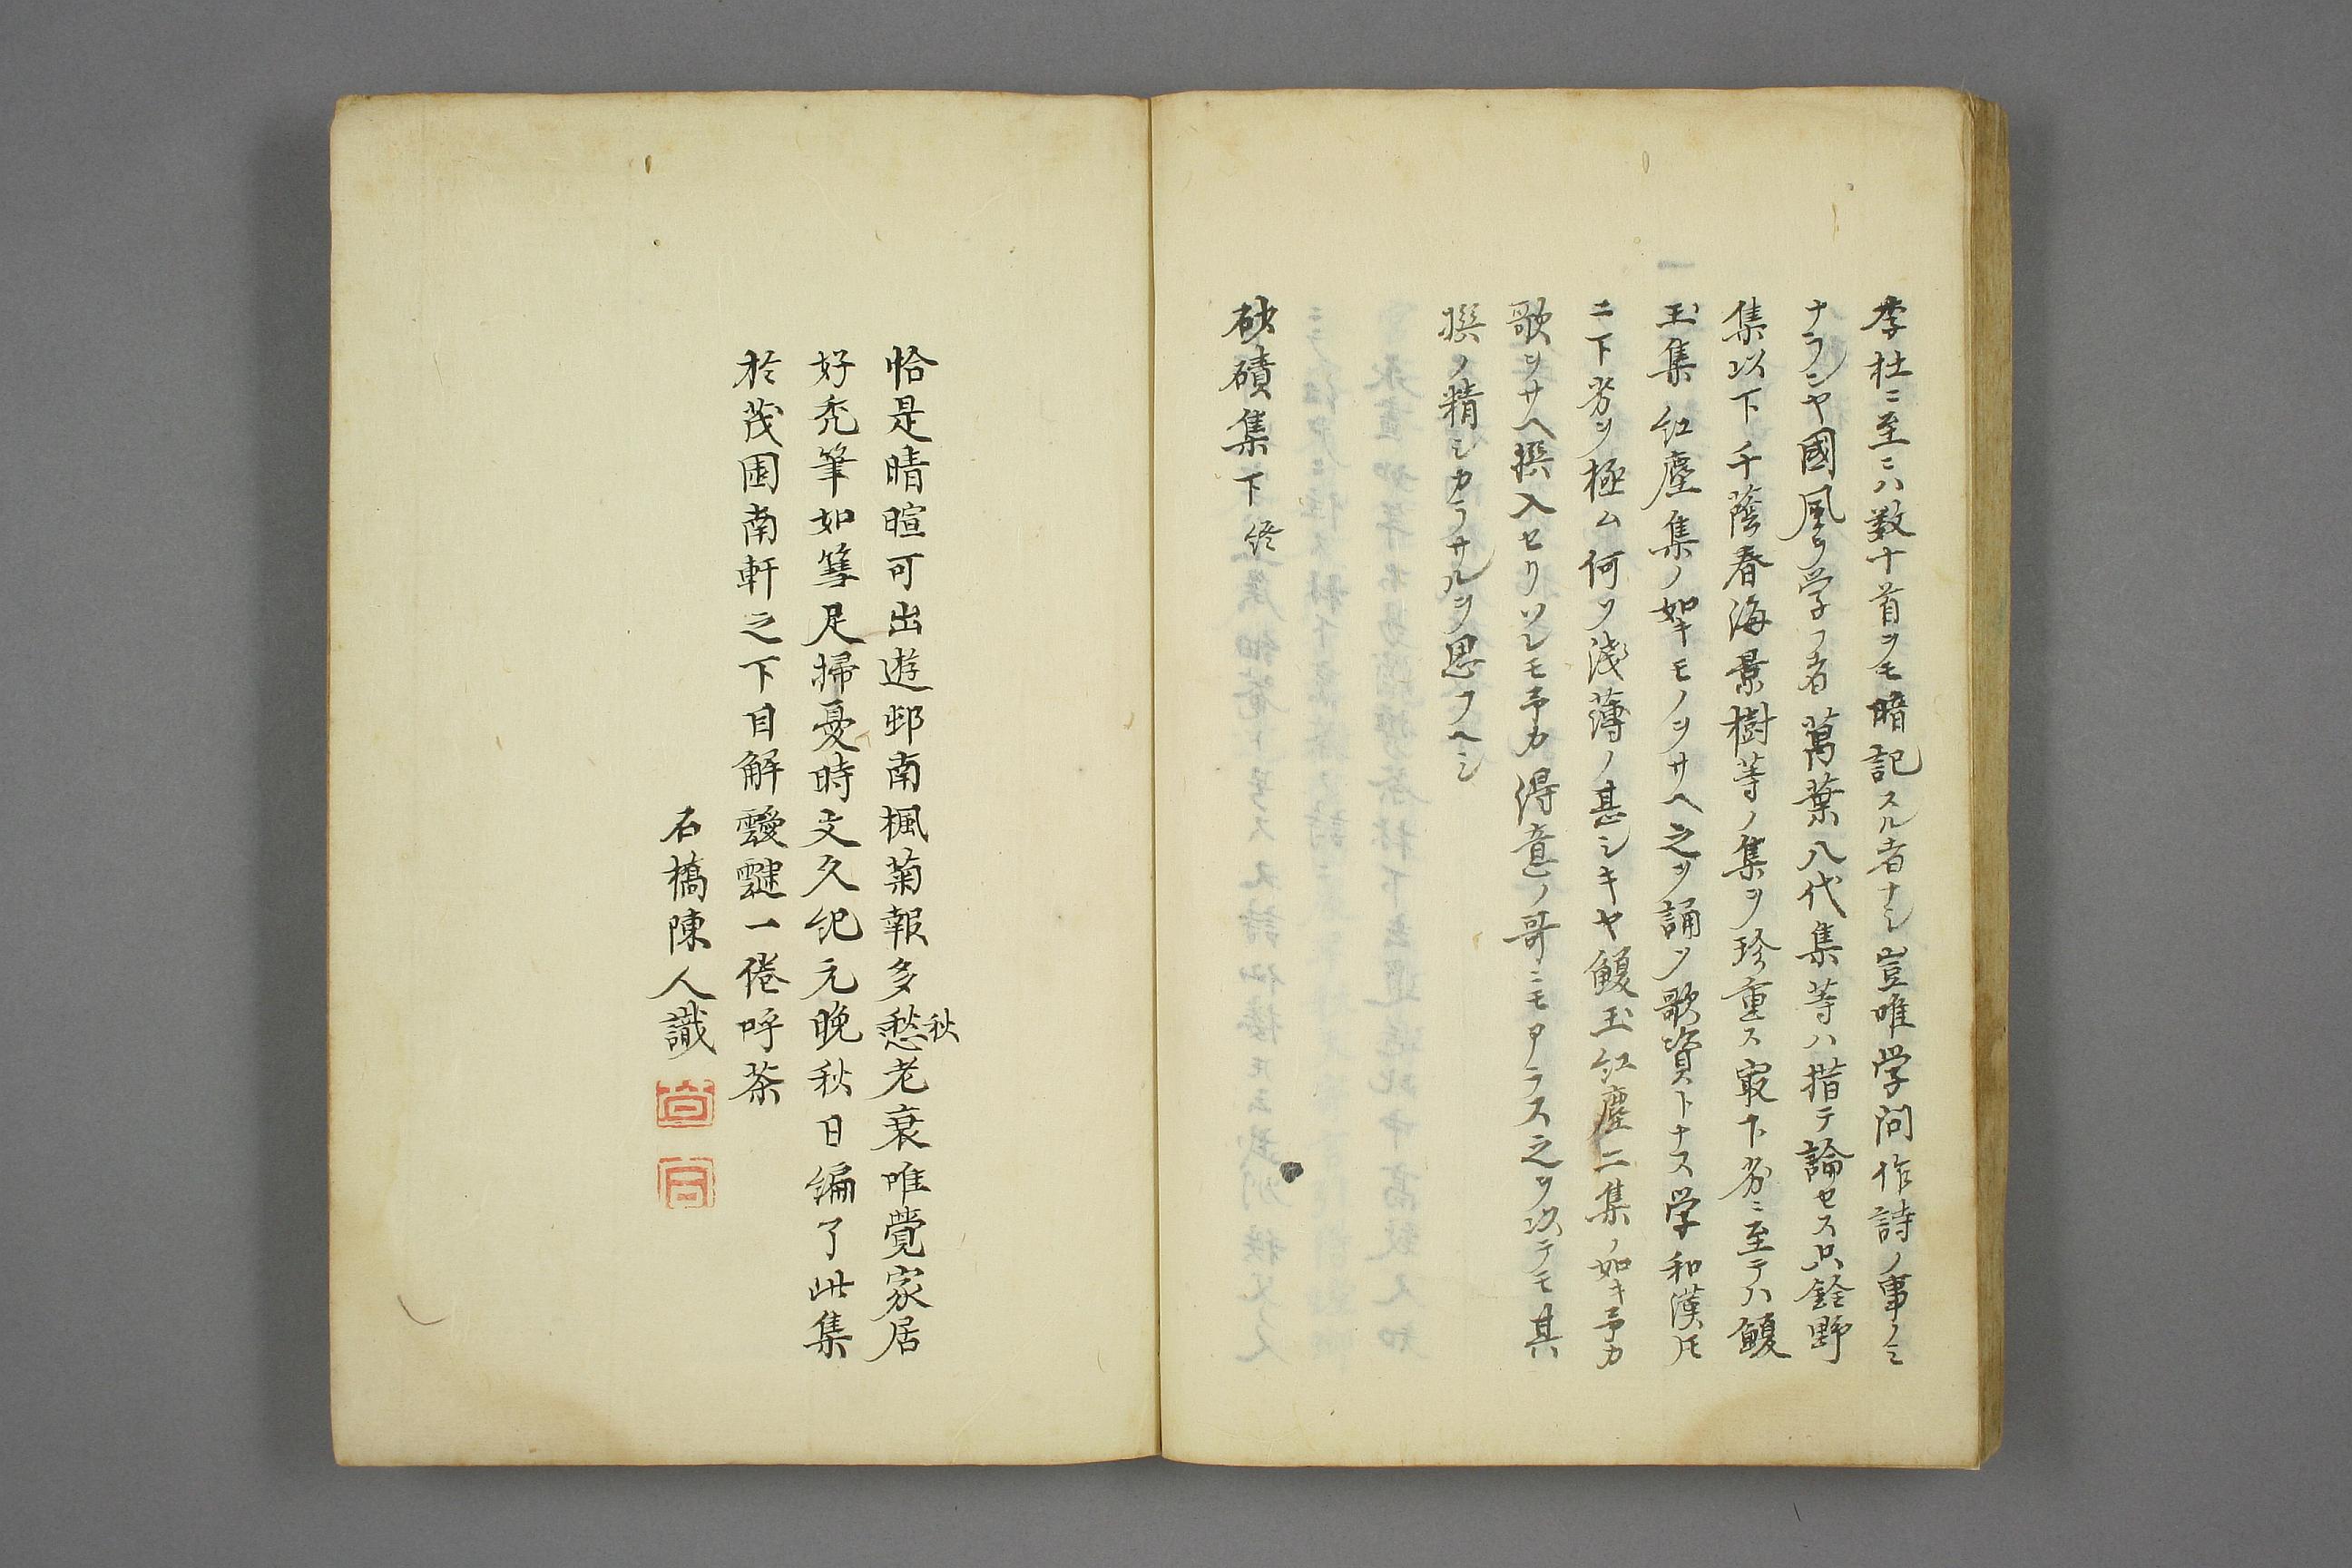 李杜ニ至ニハ数十首ヲモ暗記スル者ナシ豈唯学問作詩ノ事ノミ
ナランヤ國風ヲ学フ者萬葉八代集等ハ措テ論セス只鋒野
集以下千蔭春海景樹等ノ集ヲ珍重ス冣下劣ニ至テハ鰒
玉集紅塵集ノ如キモノヲサヘ之ヲ誦ソ歌資トナス学和漢𪜈
ニ下劣ヲ極ム何ソ浅薄ノ甚シキヤ鰒玉紅塵二集ノ如キ予カ
歌ヲサヘ撰入セリソレモ予カ得意ノ哥ニモアラス之ヲ以テモ其
撰ノ精シカラサルヲ思フヘシ
砂磧集下終
恰是晴暄可出遊邨南楓菊報多秋愁老衰唯覺家居
好禿筆如篲足掃憂時文久紀元晩秋日編了此集
於茂園南軒之下目解靉靆一倦呼茶
石橋陳人識